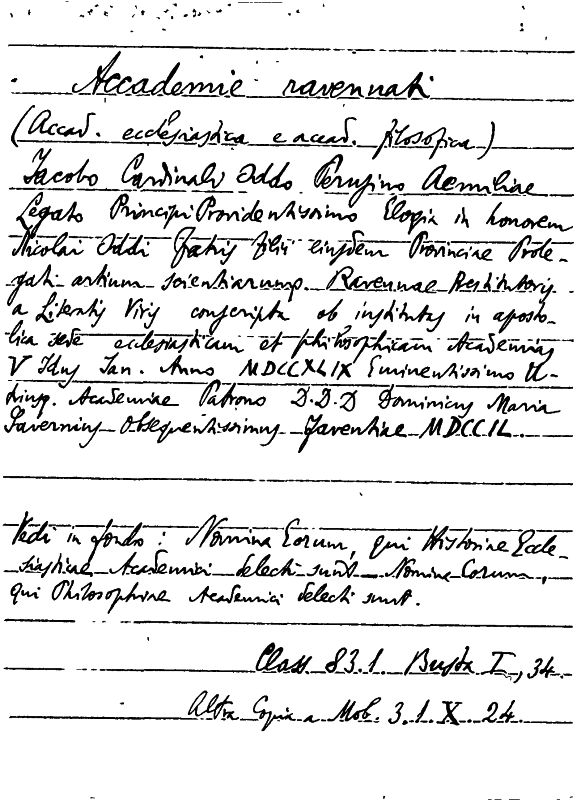 Accademie ravennati
(Accad. ecclesiastica e accad. filosofica)
Jacobo Cardinali Oddo Perusino Aemiliae
Legato Principi Providentissimo Elogia in honorem
Nicolai Oddi fratris filii eiusdem Provinciae Prole-
gati artium scientiarumq. Ravennae Restitutoris
a Literatis Viris conscripta ob institutas in aposto-
lica sede ecclesiasticam et philosophicam Academias
V Idus Jan. Anno MDCCXLIX Eminentissimo U-
triusq. Academiae Patrono D.D.D Dominicus Maria
Obsequentissimus Faventiae MDCCIL.
Vedi in fondo: Nomina Eorum, qui Historiae Eccle-
siasticae Academici delecti sunt Nomina Eorum,
qui Philosophiae Academici delecti sunt.
Class. 83.1. Busta I, 34.
Altra Copia a Mob. 3.1.X.24.